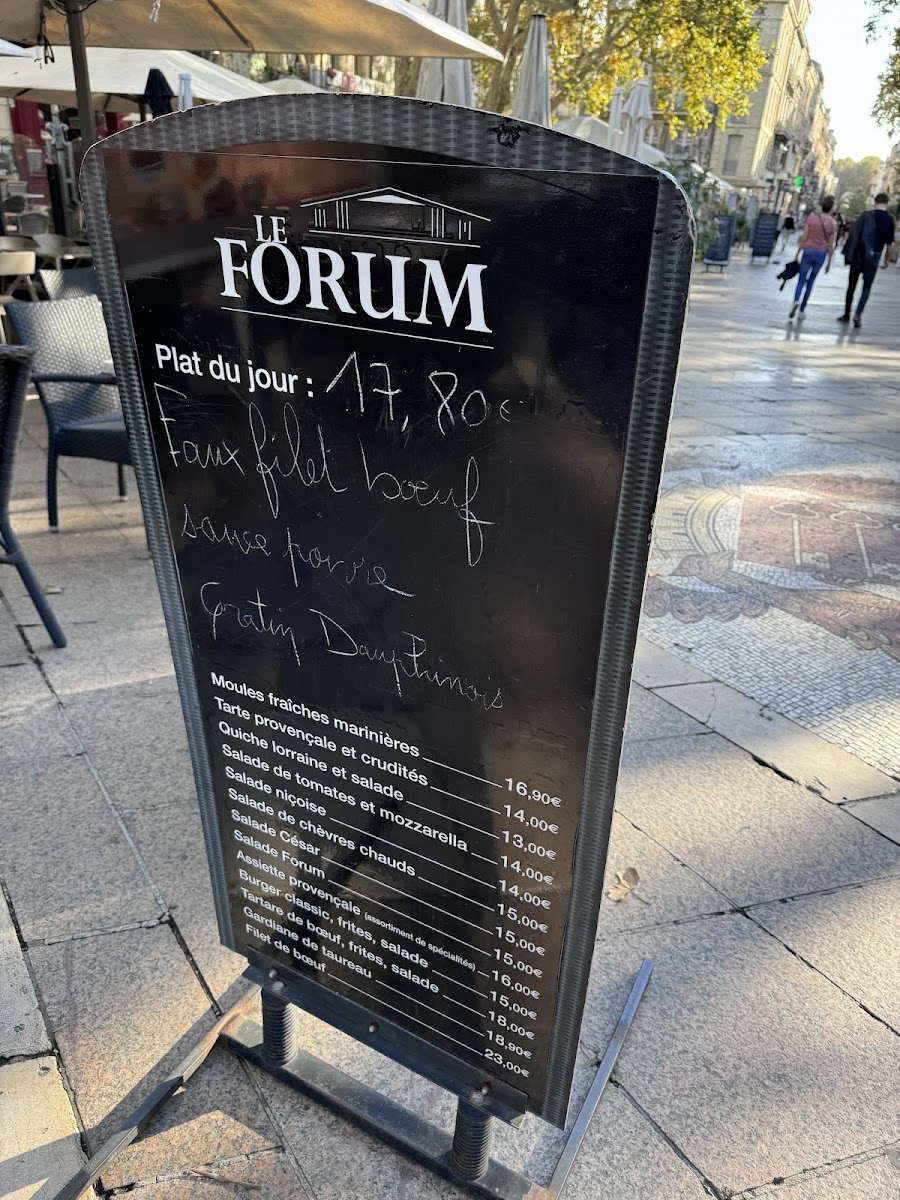 LE
FORUM
Plat du jour : 17,80€
Faux filet bœuf
sauce poivre
Gratin Dauphinois
Moules fraîches marinières 16,90€
Tarte provençale et crudités 14,00€
Quiche lorraine et salade 13,00€
Salade de tomates et mozzarella 14,00€
Salade niçoise 14,00€
Salade de chèvres chauds 15,00€
Salade César 15,00€
Salade Forum 15,00€
Assiette provençale (assortiment de spécialités) 16,00€
Burger classic, frites, salade 15,00€
Tartare de bœuf, frites, salade 18,00€
Gardiane de taureau 18,90€
Filet de bœuf 23,00€